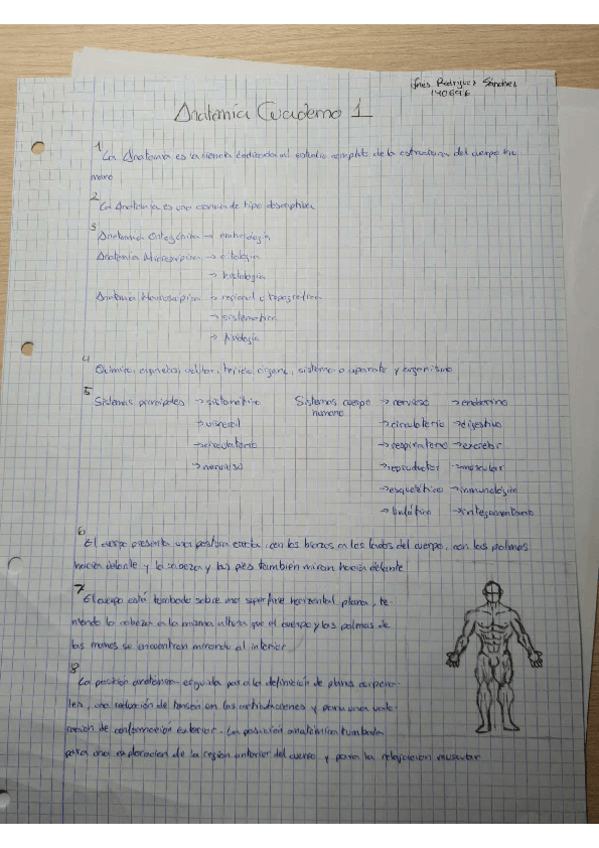 Ines Rodriguez Sánchez
140696
Anatomía Cuaderno 1
1
La Anatomia es la ciencia dedicada al estudio completo de la estructura del cuerpo hu
mano
2
La Anatomía es una ciencia de tipo descriptiva
3
Anatomia Ontogénica → embriología
Anatomía Microscópica → citología
→ histología
Anatomia Macroscópica → regional o topográfica
→ sistemática
→ Andología
4
Química, células, tejido, órgano, sistema o aparato y organismo
5
Sistemas principales → sistomático Sistemas cuerpo humano → nervioso → endocrino
→ visceral → circulatorio → digestivo
→ circulatorio → respiratorio → excretor
→ nervioso → reproductor → muscular
→ esquelético → inmunológico
→ linfático → integumentario
6
El cuerpo presenta una postura erecta, con los brazos a los lados del cuerpo, con las palmas
hacia delante y la cabeza y los pies también miran hacia delante
7
El cuerpo está tumbado sobre una superficie horizontal plana, te-
niendo la cabeza a la misma altura que el cuerpo y las palmas de
las manos se encuentran mirando al interior
8
La posición anatómica erguida para la definición de planos corpora-
les, una reducción de tensión en las articulaciones y para una valo-
ración de conformación exterior. La posición anatómica tumbada
para una exploración de la región anterior del cuerpo y para la relajación muscular